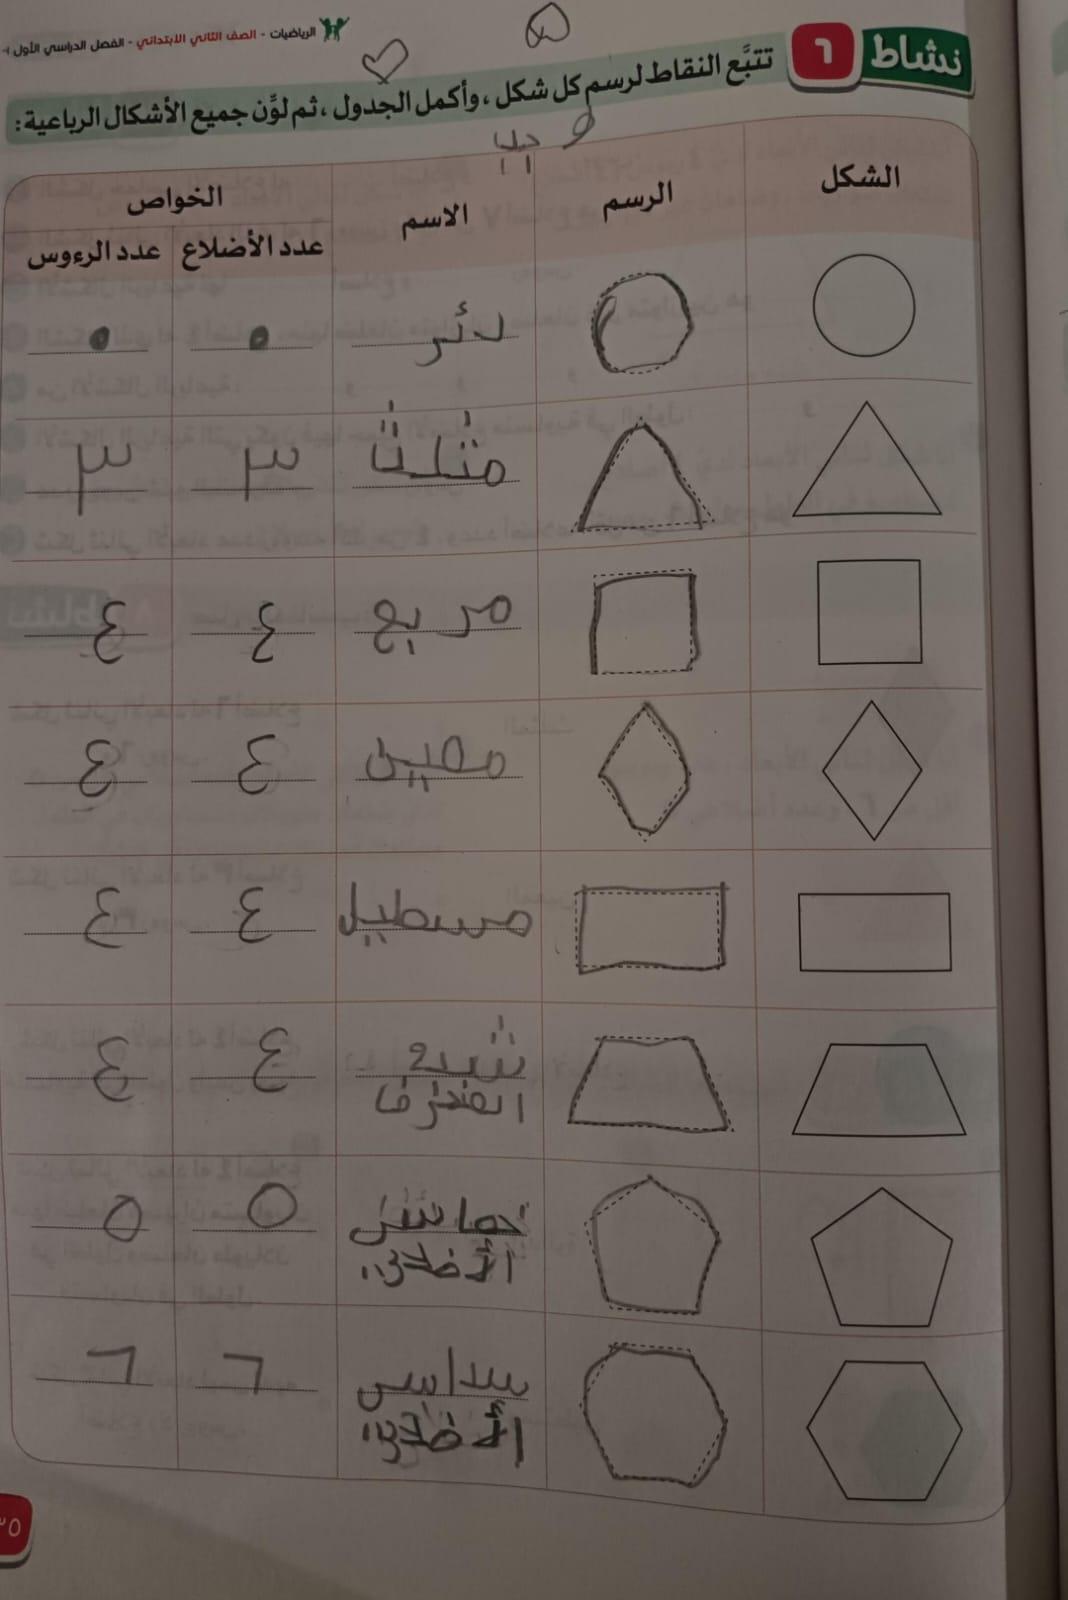 الرياضيات - الصف الثاني الابتدائي - الفصل الدراسي الأول
نشاط ٦ تتبَّع النقاط لرسم كل شكل ، وأكمل الجدول ، ثم لوِّن جميع الأشكال الرباعية :
الشكل الرسم الاسم الخواص
عدد الأضلاع عدد الرءوس
٠ ٠
٣ ٣
مربع ٤ ٤
معين ٤ ٤
مسطيل ٤ ٤
شبه ٤ ٤
خماسي ٥ ٥
سداسي ٦ ٦
٣٥